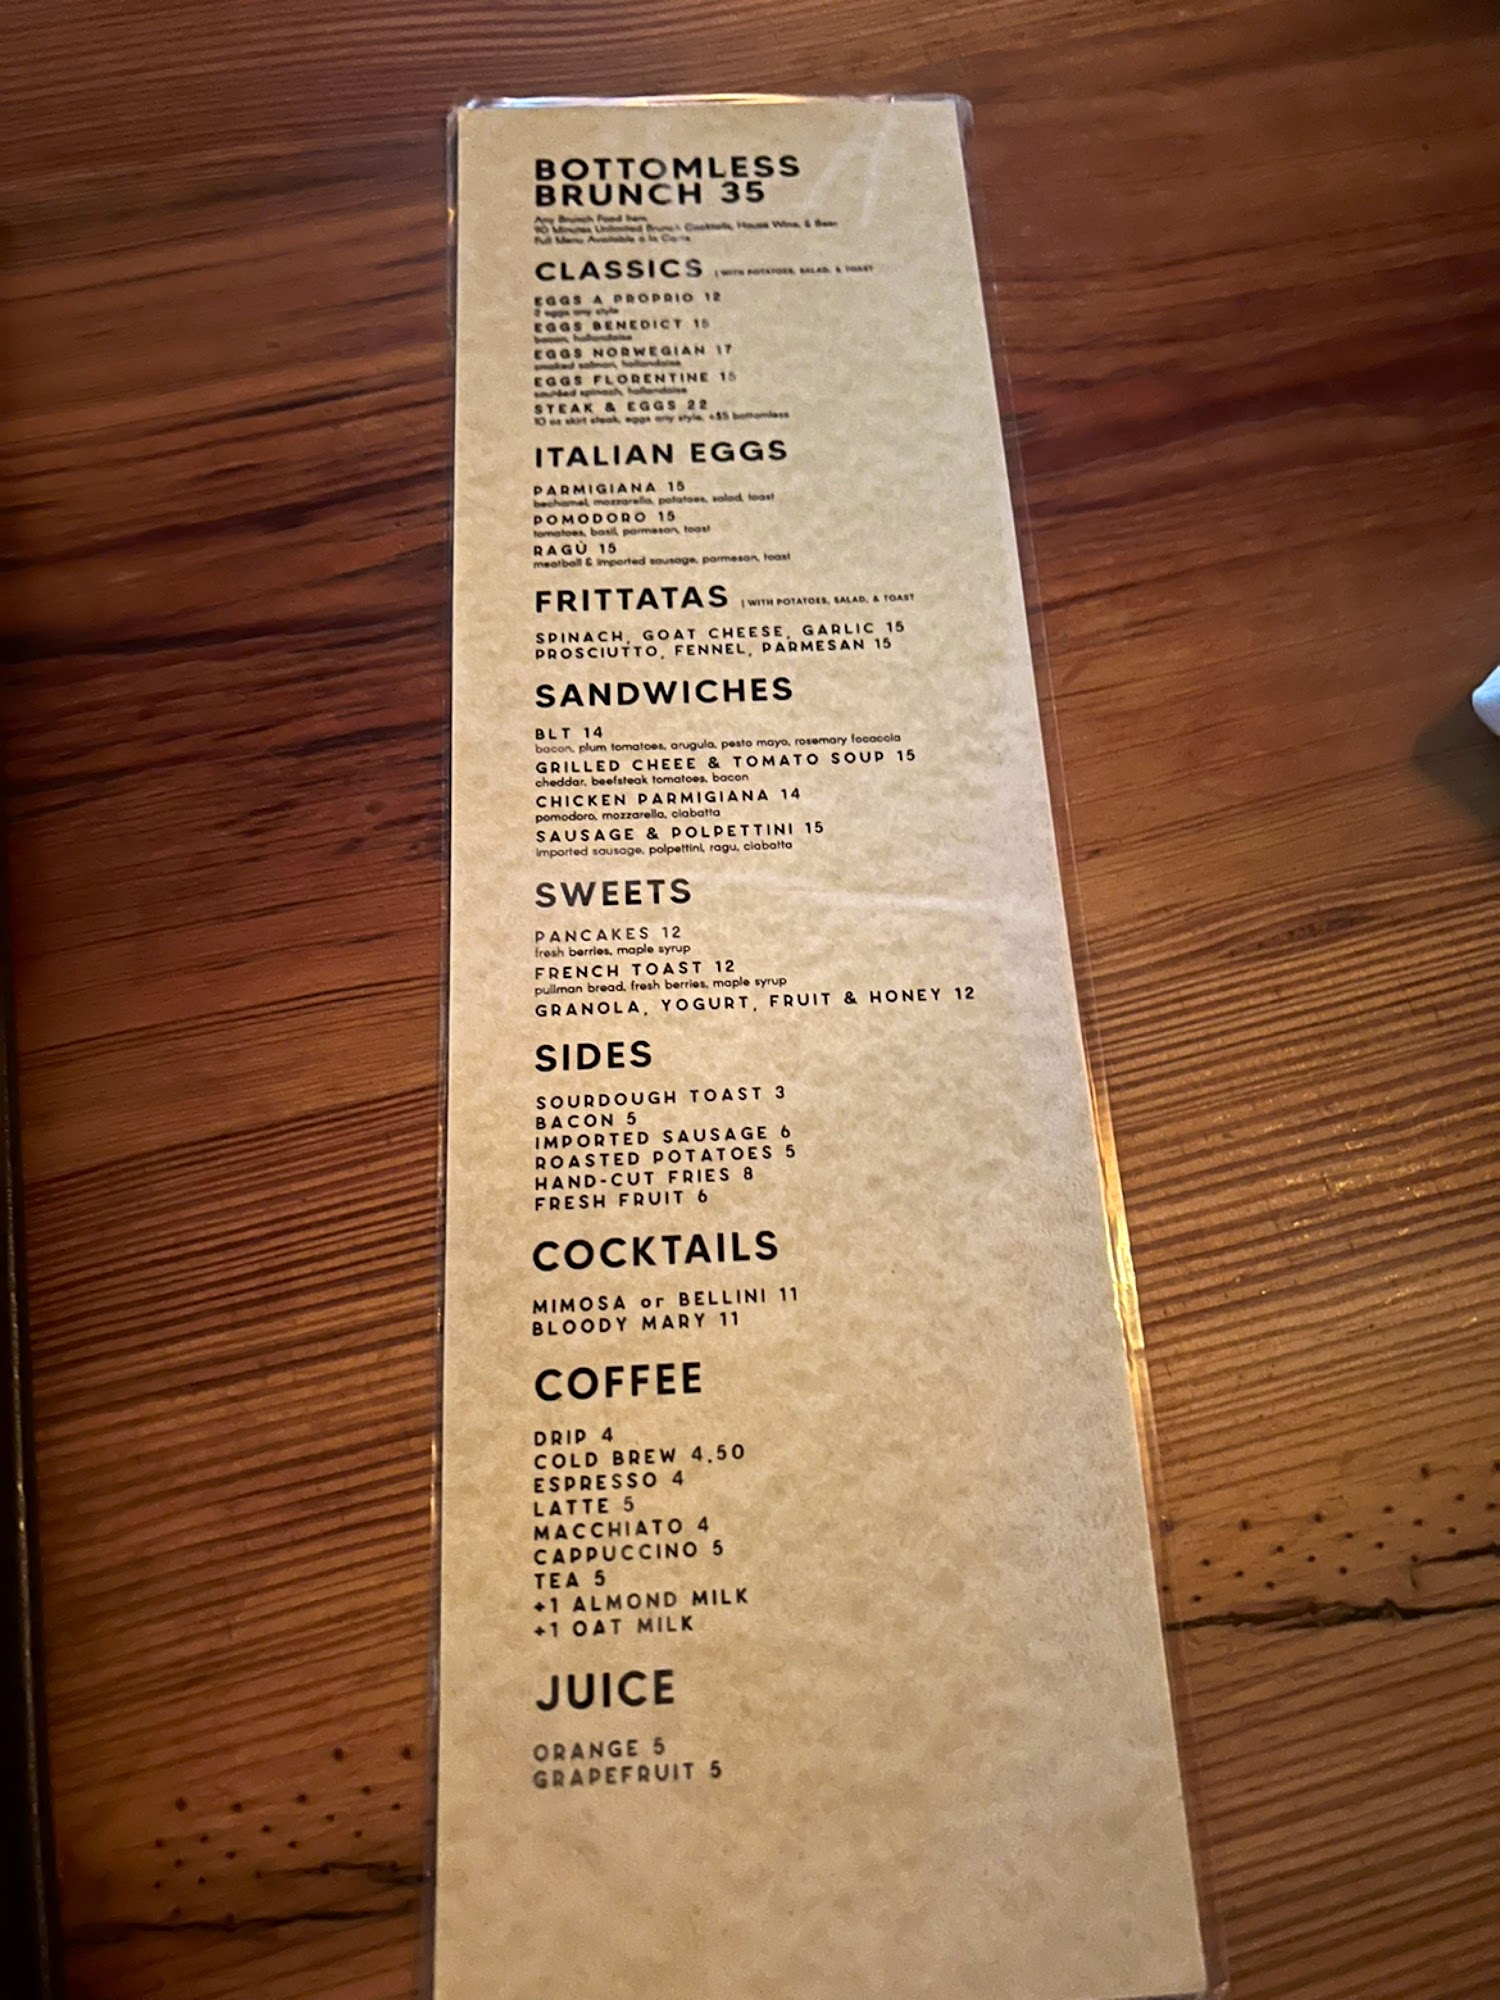 BOTTOMLESS
BRUNCH 35
Any Brunch Food Item
90 Minutes Unlimited Brunch Cocktails, House Wine, & Beer
Full Menu Available a la Carte
CLASSICS | WITH POTATOES, SALAD, & TOAST
EGGS A PROPRIO 12
2 eggs any style
EGGS BENEDICT 15
bacon, hollandaise
EGGS NORWEGIAN 17
smoked salmon, hollandaise
EGGS FLORENTINE 15
sautéed spinach, hollandaise
STEAK & EGGS 22
10 oz skirt steak, eggs any style, +$5 bottomless
ITALIAN EGGS
PARMIGIANA 15
bechamel, mozzarella, potatoes, salad, toast
POMODORO 15
tomatoes, basil, parmesan, toast
RAGÙ 15
meatball & imported sausage, parmesan, toast
FRITTATAS | WITH POTATOES, SALAD, & TOAST
SPINACH, GOAT CHEESE, GARLIC 15
PROSCIUTTO, FENNEL, PARMESAN 15
SANDWICHES
BLT 14
bacon, plum tomatoes, arugula, pesto mayo, rosemary focaccia
GRILLED CHEEE & TOMATO SOUP 15
cheddar, beefsteak tomatoes, bacon
CHICKEN PARMIGIANA 14
pomodoro, mozzarella, ciabatta
SAUSAGE & POLPETTINI 15
imported sausage, polpettini, ragu, ciabatta
SWEETS
PANCAKES 12
fresh berries, maple syrup
FRENCH TOAST 12
pullman bread, fresh berries, maple syrup
GRANOLA, YOGURT, FRUIT & HONEY 12
SIDES
SOURDOUGH TOAST 3
BACON 5
IMPORTED SAUSAGE 6
ROASTED POTATOES 5
HAND-CUT FRIES 8
FRESH FRUIT 6
COCKTAILS
MIMOSA or BELLINI 11
BLOODY MARY 11
COFFEE
DRIP 4
COLD BREW 4.50
ESPRESSO 4
LATTE 5
MACCHIATO 4
CAPPUCCINO 5
TEA 5
+1 ALMOND MILK
+1 OAT MILK
JUICE
ORANGE 5
GRAPEFRUIT 5